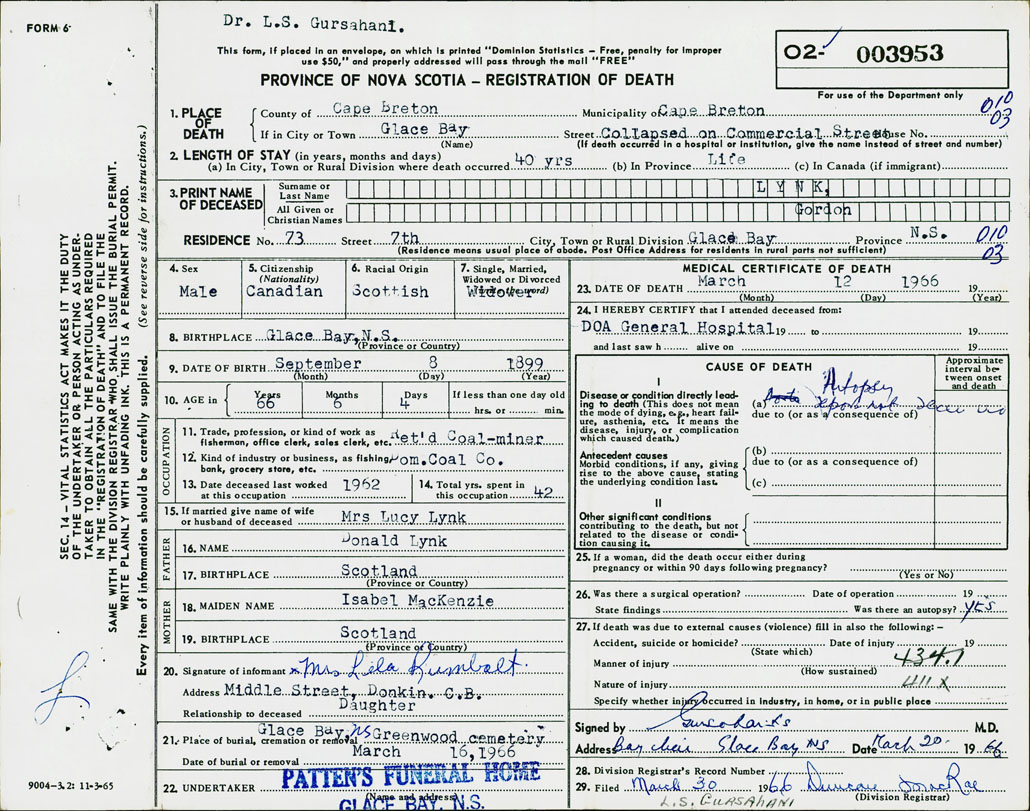 Dr. L.S. Gursahani.
FORM 6
This form, if placed in an envelope, on which is printed "Dominion Statistics – Free, penalty for improper
use $50," and properly addressed will pass through the mail "FREE"
PROVINCE OF NOVA SCOTIA – REGISTRATION OF DEATH
02- 003953
For use of the Department only
010
03
1. PLACE OF DEATH
County of Cape Breton Municipality of Cape Breton
If in City or Town Glace Bay Street Collapsed on Commercial Street House No.
(Name) (If death occurred in a hospital or institution, give the name instead of street and number)
2. LENGTH OF STAY (in years, months and days)
(a) In City, Town or Rural Division where death occurred 40 yrs (b) In Province Life (c) In Canada (if immigrant)
3. PRINT NAME OF DECEASED
Surname or Last Name LYNK,
All Given or Christian Names Gordon
RESIDENCE No. 73 Street 7th City, Town or Rural Division Glace Bay Province N.S.
(Residence means usual place of abode. Post Office Address for residents in rural parts not sufficient)
010
03
4. Sex Male
5. Citizenship (Nationality) Canadian
6. Racial Origin Scottish
7. Single, Married, Widowed or Divorced Widower
8. BIRTHPLACE Glace Bay, N.S.
(Province or Country)
9. DATE OF BIRTH September 8 1899
(Month) (Day) (Year)
10. AGE in Years 66 Months 6 Days 4 If less than one day old hrs. or min.
OCCUPATION
11. Trade, profession, or kind of work as fisherman, office clerk, sales clerk, etc. Ret'd Coal-miner
12. Kind of industry or business, as fishing, bank, grocery store, etc. Dom.Coal Co.
13. Date deceased last worked at this occupation 1962
14. Total yrs. spent in this occupation 42
15. If married give name of wife or husband of deceased Mrs Lucy Lynk
FATHER
16. NAME Donald Lynk
17. BIRTHPLACE Scotland
(Province or Country)
MOTHER
18. MAIDEN NAME Isabel MacKenzie
19. BIRTHPLACE Scotland
(Province or Country)
20. Signature of informant Mrs Lila Rumbolt.
Address Middle Street, Donkin. C.B.
Relationship to deceased Daughter
21. Place of burial, cremation or removal Glace Bay, NS Greenwood cemetery
Date of burial or removal March 16, 1966
22. UNDERTAKER PATTEN'S FUNERAL HOME
(Name and address)
GLACE BAY, N.S.
MEDICAL CERTIFICATE OF DEATH
23. DATE OF DEATH March 12 1966 19
(Month) (Day) (Year)
24. I HEREBY CERTIFY that I attended deceased from:
DOA General Hospital 19 to 19
and last saw h alive on 19
CAUSE OF DEATH
Approximate interval between onset and death
I
Disease or condition directly leading to death (This does not mean the mode of dying, e.g., heart failure, asthenia, etc. It means the disease, injury, or complication which caused death.)
(a) Autopsy
due to (or as a consequence of)
Antecedent causes
Morbid conditions, if any, giving rise to the above cause, stating the underlying condition last.
(b)
due to (or as a consequence of)
(c)
II
Other significant conditions contributing to the death, but not related to the disease or condition causing it.
25. If a woman, did the death occur either during pregnancy or within 90 days following pregnancy?
(Yes or No)
26. Was there a surgical operation? Date of operation 19
State findings Was there an autopsy? yes
27. If death was due to external causes (violence) fill in also the following: –
Accident, suicide or homicide? Date of injury 19
(State which)
Manner of injury 434.1
(How sustained)
Nature of injury 411X
Specify whether injury occurred in industry, in home, or in public place
Signed by M.D.
Address Glace Bay NS Date March 20 1966
28. Division Registrar's Record Number
29. Filed March 30 1966 Duncan MacRae
(Division Registrar)
L.S. GURSAHANI
SEC. 14 – VITAL STATISTICS ACT MAKES IT THE DUTY
OF THE UNDERTAKER OR PERSON ACTING AS UNDER-
TAKER TO OBTAIN ALL THE PARTICULARS REQUIRED
IN THE "REGISTRATION OF DEATH" AND TO FILE THE
SAME WITH THE DIVISION REGISTRAR WHO SHALL ISSUE THE BURIAL PERMIT.
WRITE PLAINLY WITH UNFADING INK. THIS IS A PERMANENT RECORD.
Every item of information should be carefully supplied. (See reverse side for instructions.)
9004-3.2: 11-3-65